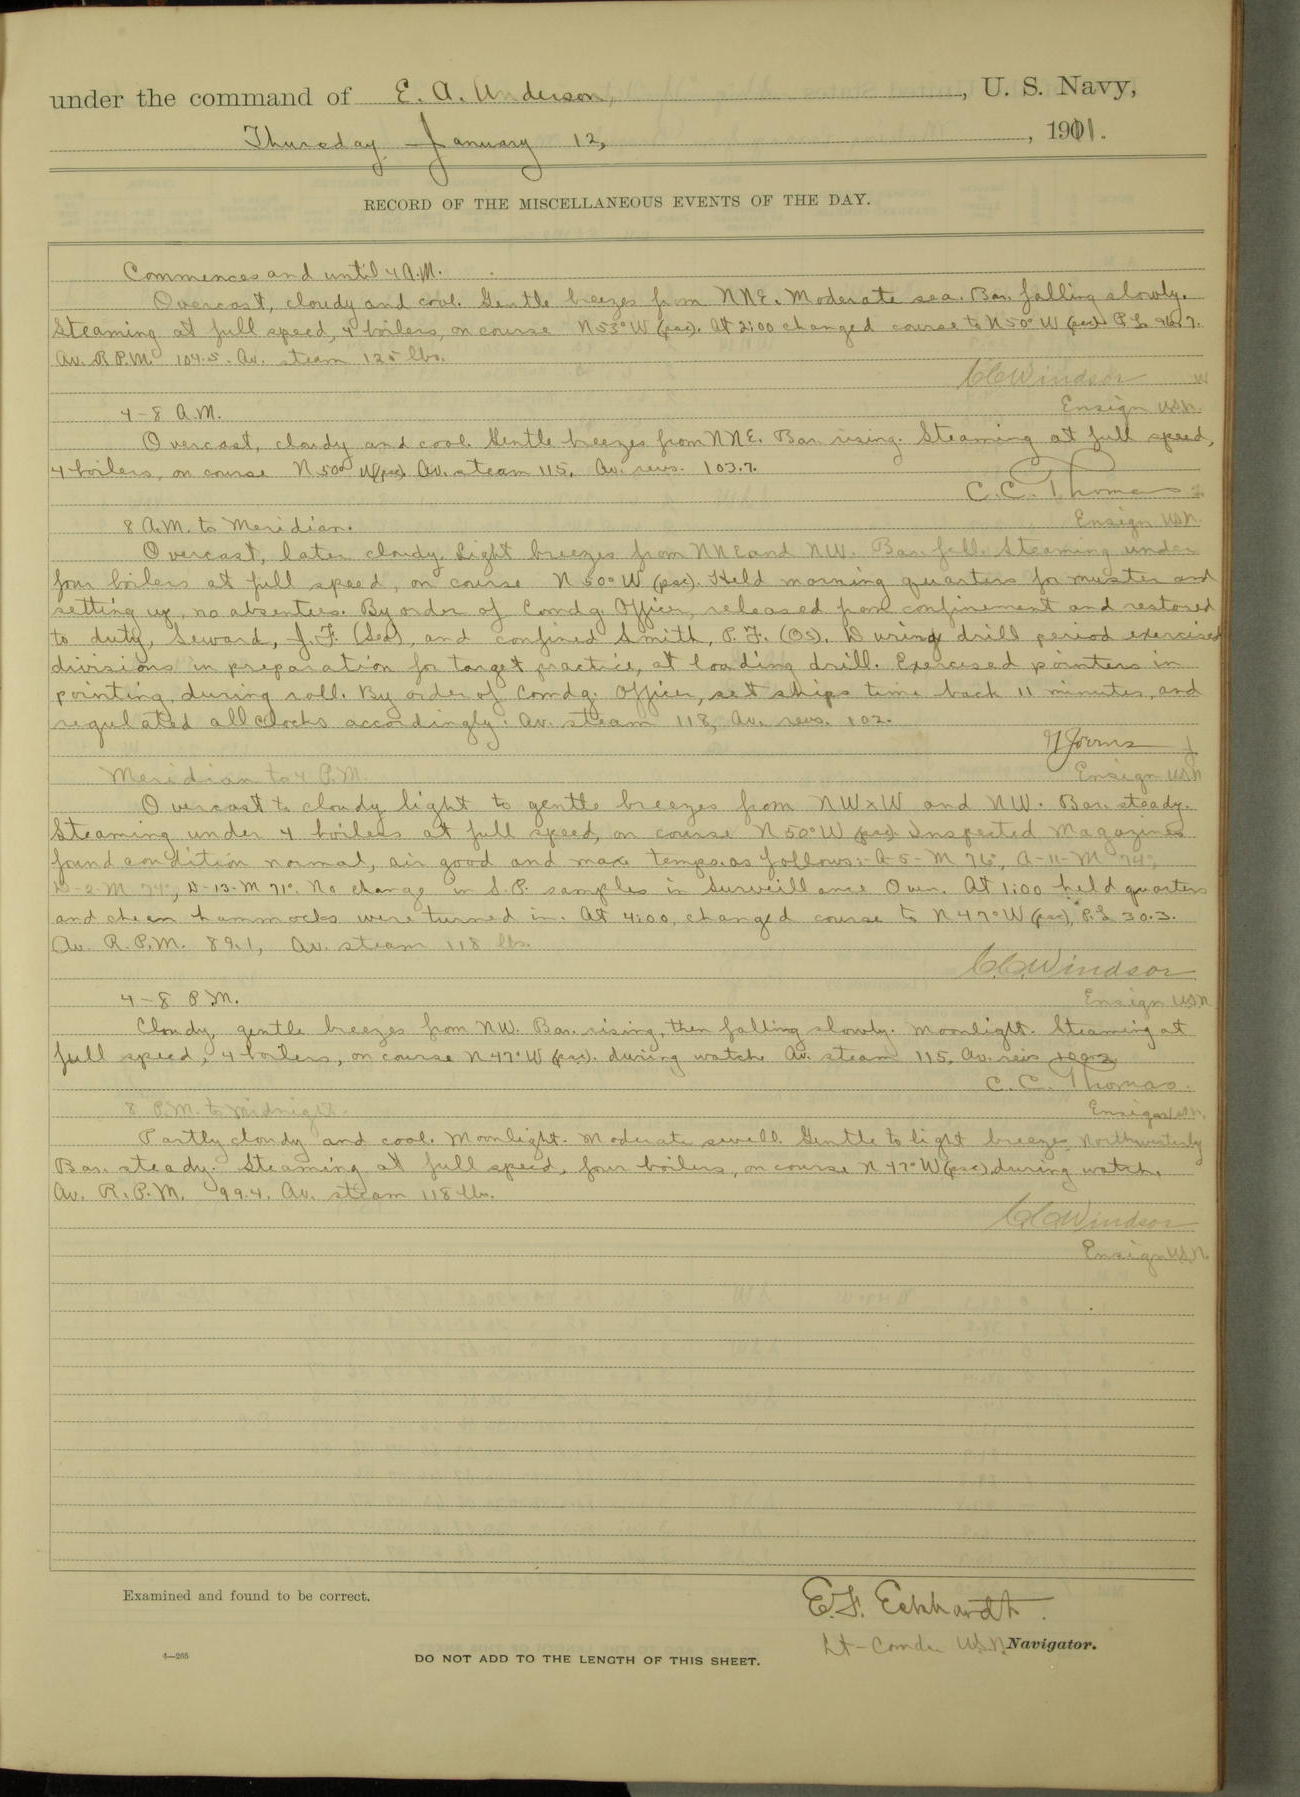 under the command of E. A. Anderson, U. S. Navy,
Thursday, January 12, 1911.
RECORD OF THE MISCELLANEOUS EVENTS OF THE DAY.
Commences and until 4 A.M.
Overcast, cloudy and cool. Gentle breezes from NNE. Moderate sea. Bar. falling slowly.
Steaming at full speed, 4 boilers, on course N 53° W (psc). At 2:00 changed course to N 50° W (psc). P.L. 96.7.
Av. R.P.M. 104.5. Av. steam 125 lbs.
C C Windsor
Ensign U.S.N.
4-8 A.M.
Overcast, cloudy and cool. Gentle breezes from NNE. Bar. rising. Steaming at full speed,
4 boilers, on course N 50° W (psc) Av. steam 115, Av. revs. 103.7.
C. C. Thomas
Ensign U.S.N.
8 A.M. to Meridian.
Overcast, later cloudy. Light breezes from NNE and NW. Bar. fell. Steaming under
four boilers at full speed, on course N 50° W (psc). Held morning quarters for muster and
setting up, no absentees. By order of Comdg. Officer, released from confinement and restored
to duty, Seward, J. F. (Sea), and confined Smith, P. F. (OS). During drill period exercised
divisions in preparation for target practice, at loading drill. Exercised pointers in
pointing during roll. By order of Comdg. Officer, set ships time back 11 minutes, and
regulated all clocks accordingly. Av. steam 118, Av. revs. 102.
Ensign U.S.N.
Meridian to 4 P.M.
Overcast to cloudy, light to gentle breezes from NWxW and NW. Bar. steady.
Steaming under 4 boilers at full speed, on course N 50° W (psc). Inspected Magazines
found condition normal, air good and max. temps. as follows:- A-5-M 76°, A-11-M 74°,
D-2-M 74°, D-13-M 71°. No change in S.P. samples in Surveillance Oven. At 1:00 held quarters
and clean hammocks were turned in. At 4:00, changed course to N 47° W (psc), P.L. 30.3.
Av. R.P.M. 89.1, Av. steam 118 lbs.
C.C. Windsor
Ensign U.S.N.
4-8 P.M.
Cloudy, gentle breezes from NW. Bar. rising, then falling slowly. Moonlight. Steaming at
full speed, 4 boilers, on course N 47° W (psc). during watch. Av. steam 115, Av. revs
C. C. Thomas.
Ensign U.S.N.
8 P.M. to Midnight.
Partly cloudy and cool. Moonlight. Moderate swell. Gentle to light breezes Northwesterly
Bar. steady. Steaming at full speed, four boilers, on course N 47° W (psc) during watch.
Av. R.P.M. 99.4. Av. steam 118 lbs.
C C Windsor
Ensign U.S.N.
Examined and found to be correct.
E. F. Eckhardt.
Lt-Comdr U.S.N. Navigator.
4—265
DO NOT ADD TO THE LENGTH OF THIS SHEET.